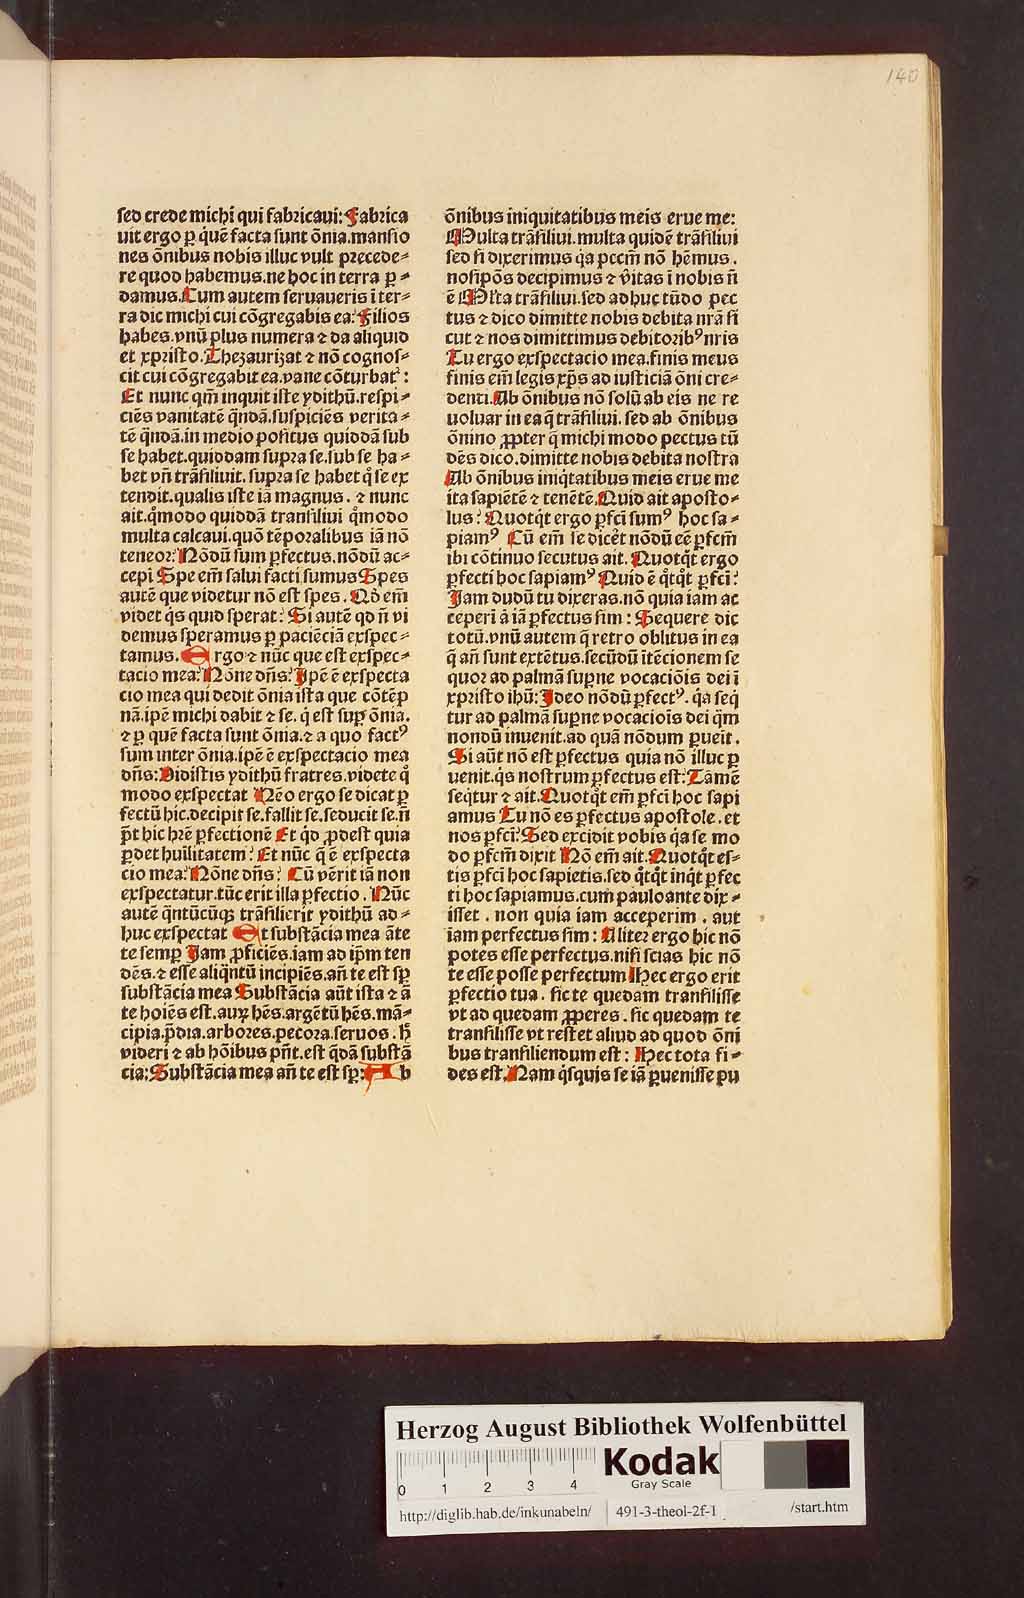 140
sed crede michi qui fabricaui: Fabrica
uit ergo ꝑ quē facta sunt ōnia. mansio
nes ōnibus nobis illuc vult precede⸗
re quod habemus. ne hoc in terra ꝑ⸗
damus. Cum autem seruaueris ī ter⸗
ra dic michi cui cōgregabis ea? Filios
habes. vnū plus numera ⁊ da aliquid
et xp̄risto. Thezaurizat ⁊ nō cognos⸗
cit cui cōgregabit ea. vane cōturbat᷑:
Et nunc qm̄ inquit iste ydithū. respi⸗
ciēs vanitatē q̄ndā. suspiciēs verita⸗
tē q̄ndā. in medio positus quiddā sub
se habet. quiddam supra se. sub se ha⸗
bet vn̄ trāsiliuit. supra se habet qͦ se ex
tendit. qualis iste iā magnus. ⁊ nunc
ait. qͦmodo quiddā transiliui qͦmodo
multa calcaui. quō tēporalibus iā nō
teneor? Nōdū sum ꝑfectus. nōdū ac⸗
cepi Spe em̄ salui facti sumus Spes
autē que videtur nō est spes. Qd̄ em̄
videt qͥs quid sperat? Si autē qd n̄ vi
demus speramus ꝑ paciēciā exspec⸗
tamus. Ergo ⁊ nūc que est exspec⸗
tacio mea? Nōne dn̄s? Ipē ē exspecta
cio mea qui dedit ōnia ista que cōtēp
nā. ipē michi dabit ⁊ se. q̇ est suꝑ ōnia.
⁊ ꝑ quē facta sunt ōnia. ⁊ a quo factꝰ
sum inter ōnia. ipē ē exspectacio mea
dn̄s: Vidistis ydithū fratres. videte qͦ
modo exspectat Nēo ergo se dicat ꝑ
fectū hic. decipit se. fallit se. seducit se. n̄
p̄t hic hr̄e ꝑfectionē Et qͥd ꝓdest quia
ꝑdet huīlitatem? Et nūc q̄ ē exspecta
cio mea? Nōne dn̄s? Cū vērit iā non
exspectatur. tūc erit illa ꝑfectio. Nūc
autē qͣntūcūqꝫ trāsilierit ydithū ad⸗
huc exspectat Et substācia mea āte
te semꝑ Jam ꝓficiēs. iam ad ip̄m ten
dēs. ⁊ esse aliqͣntū incipiēs. an̄ te est sꝑ
substācia mea Substācia aūt ista ⁊ ā
te hoīes est. auꝝ hn̄s. argētū hn̄s. mā⸗
cipia. p̄dia. arbores. pecora. seruos. h̄
videri ⁊ ab hōibus pn̄t. est qͣdā substā
cia: Substācia mea an̄ te est sꝑ: Ab
ōnibus iniquitatibus meis erue me:
Multa trāsiliui. multa quidē trāsiliui
sed si dixerimus qͥa pccm̄ nō hēmus.
nosip̄os decipimus ⁊ v̄itas ī nobis n̄
ē Ml̄ta trāsiliui. sed adhuc tūdo pec
tus ⁊ dico dimitte nobis debita nr̄a si
cut ⁊ nos dimittimus debitoribꝰ nris
Tu ergo exspectacio mea. finis meus
finis em̄ legis xp̄s ad iusticiā ōni cre⸗
denti. Ab ōnibus nō solū ab eis ne re
uoluar in ea q̄ trāsiliui. sed ab ōnibus
ōnino ꝓpter q̄ michi modo pectus tū
dēs dico. dimitte nobis debita nostra
Ab ōnibus iniqͥtatibus meis erue me
ita sapiētē ⁊ tenētē. Quid ait aposto⸗
lus? Quotqͦt ergo ꝑfcī sumꝰ hoc sa⸗
piamꝰ Cū em̄ se dicēt nōdū eē ꝑfcm̄
ibi cōtinuo secutus ait. Quotqͦt ergo
ꝑfecti hoc sapiamꝰ Quid ē qͦtqͦt ꝑfcī?
Jam dudū tu dixeras. nō quia iam ac
ceperī ā iā ꝑfectus sim: Sequere dic
totū. vnū autem q̄ retro oblitus in ea
q̄ an̄ sunt extētus. secūdū ītēcionem se
quor ad palmā suꝑne vocaciōis dei ī
xp̄risto ihū: Ideo nōdū ꝑfectꝰ. qͥa seqͥ
tur ad palmā suꝑne vocaciois dei qͣm
nondū inuenit. ad quā nōdum ꝑueit.
Si aūt nō est ꝑfectus quia nō illuc ꝑ
uenit. qͥs nostrum ꝑfectus est? Tāmē
seqͥtur ⁊ ait. Quotqͦt em̄ ꝑfcī hoc sapi
amus Tu nō es ꝑfectus apostole. et
nos ꝑfcī? Sed excidit vobis qͥa se mo
do ꝑfcm̄ dixit Nō em̄ ait. Quotqͦt es⸗
tis ꝑfcī hoc sapietis. sed qͦtqͦt inqͥt ꝑfec
ti hoc sapiamus. cum pauloante dix⸗
isset. non quia iam acceperim. aut
iam perfectus sim: Aliter ergo hic nō
potes esse perfectus. nisi scias hic nō
te esse posse perfectum Hec ergo erit
ꝑfectio tua. sic te quedam transilisse
vt ad quedam ꝓperes. sic quedam te
transilisse vt restet aliud ad quod ōni
bus transiliendum est: Hec tota fi⸗
des est. Nam qͥsquis se iā ꝑuenisse pu
Herzog August Bibliothek Wolfenbüttel
0 1 2 3 4
Kodak
Gray Scale
http://diglib.hab.de/inkunabeln/ 491-3-theol-2f-1 /start.htm